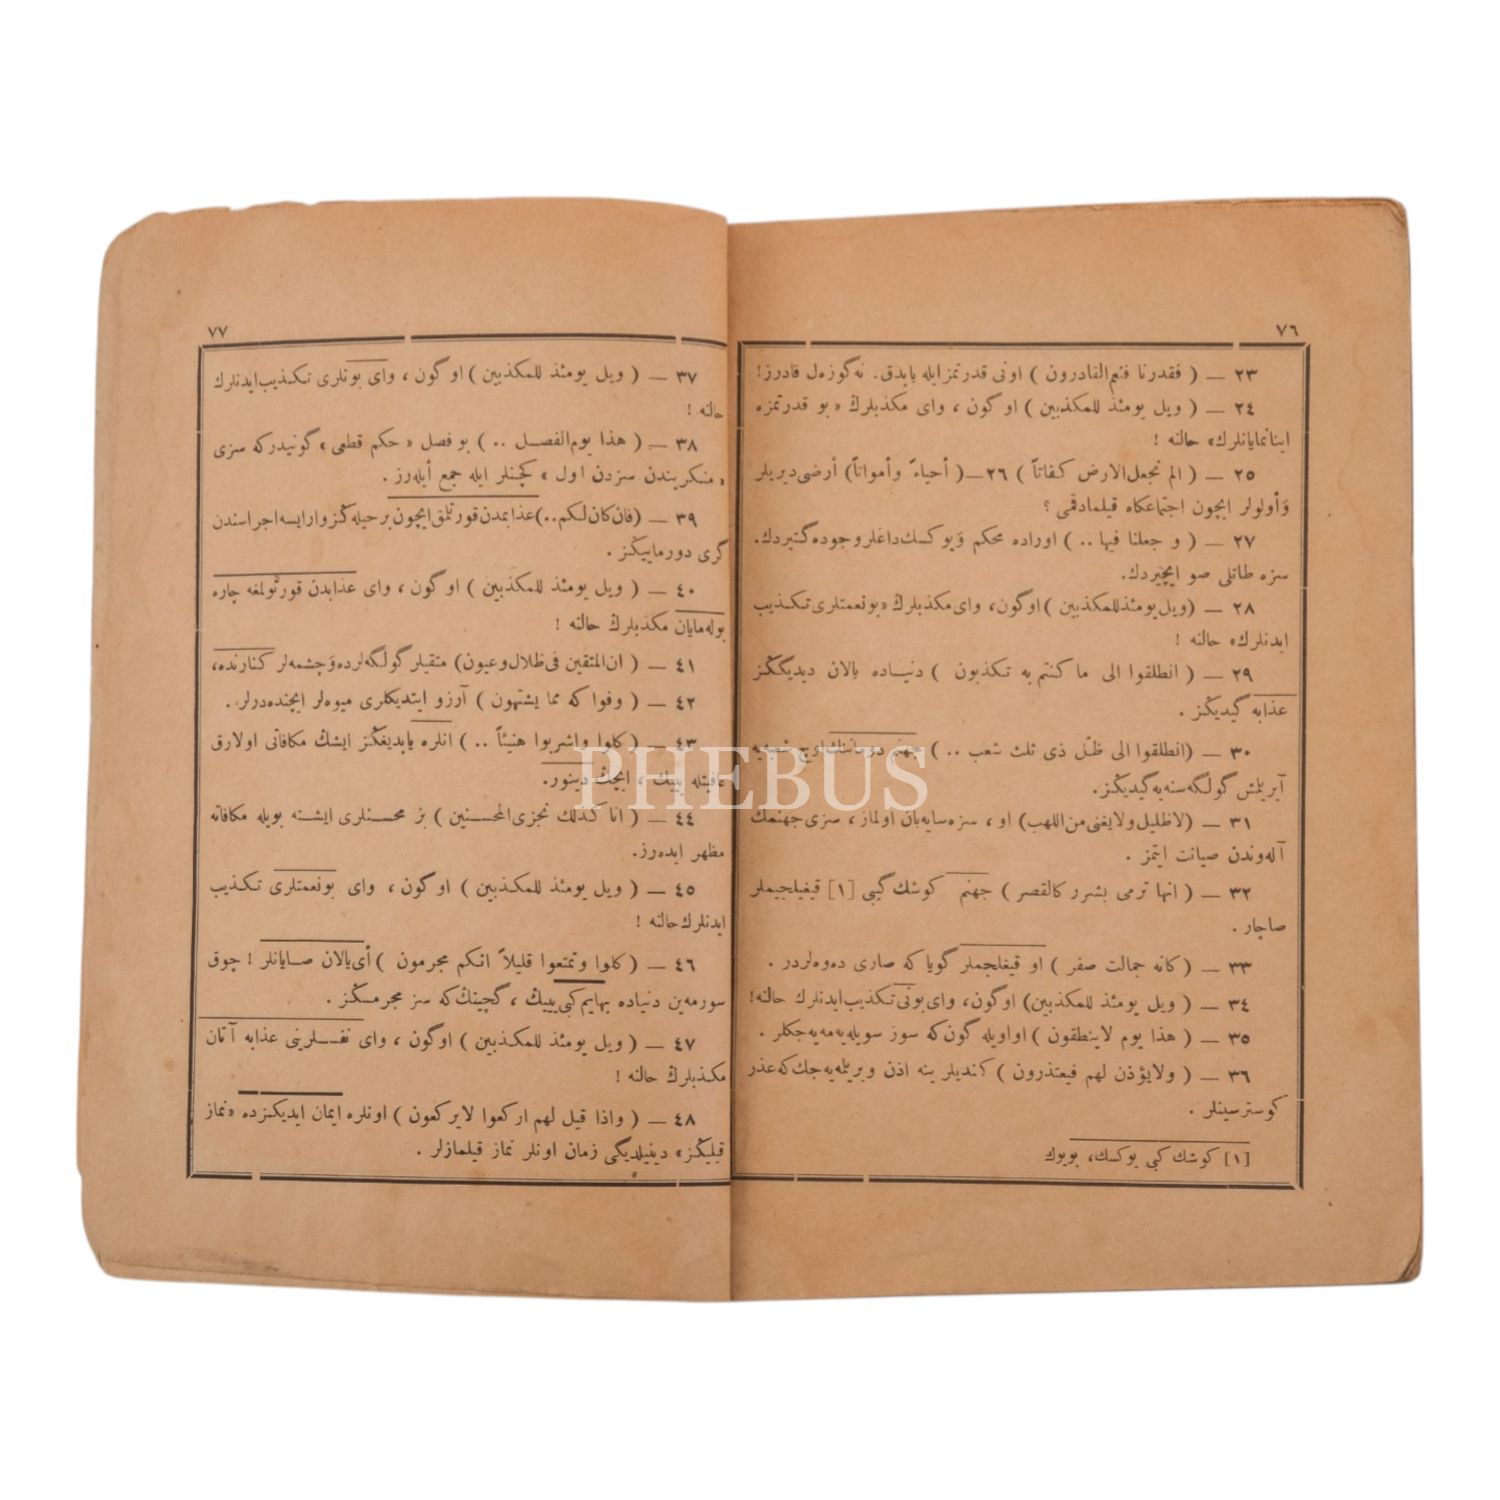 ٧٦
٢٣ — ( فقدرنا فنعم القادرون ) اونى قدرتمز ايله ياپدق. نه گوزەل قادرز!
٢٤ — ( ويل يومئذ للمكذبين ) او گون ، واى مكذبلرڭ « بو قدرتمزه
اينانمايانلرڭ» حالنه !
٢٥ — ( الم نجعل الارض كفاتاً ) ٢٦ —( أحياءً وأمواتاً) أرضى ديريلر
وَأولولر ايچون اجتماعكاه قيلمادقمى ؟
٢٧ — ( و جعلنا فيها .. ) اوراده محكم وَيوكسك داغلر وجوده گتيردك.
سزه طاتلى صو ايچيردك.
٢٨ — (ويل يومئذ للمكذبين ) او گون، واى مكذبلرڭ « بو نعمتلرى تكذيب
ايدنلرك» حالنه !
٢٩ — ( انطلقوا الى ما كنتم به تكذبون ) دنياده يالان ديديگڭز
عذابه گيديڭز .
٣٠ — (انطلقوا الى ظلّ ذى ثلث شعب .. ) جهنم دومانىنڭ اوچ شعبه‌يه
آيريلمش گولگه‌سنه‌يه گيديڭز.
٣١ — (لاظليل ولايغنى من اللهب) او ، سزه سايه‌بان اولماز ، سزى جهنمڭ
آله‌وندن صيانت ايتمز .
٣٢ — ( انها ترمى بشرر كالقصر ) جهنم كوشك گيبى [١] قيغيلجيملر
صاچار .
٣٣ — (كانه جمالت صفر ) او قيغلجملر گويا كه صارى ده‌وه‌لردر .
٣٤ — ( ويل يومئذ للمكذبين) او گون، واى بونى تكذيب ايدنلرك حالنه!
٣٥ — ( هذا يوم لاينطقون ) او اويله گون كه سوز سويله‌يه‌مه‌يه‌جكلر .
٣٦ — ( ولايؤذن لهم فيعتذرون ) كنديلر ينه اذن ويريلمه‌يه‌جك كه عذر
كوسترسينلر .
[١] كوشك كبى يوكسك، بويوك
٧٧
٣٧ — ( ويل يومئذ للمكذبين ) او گون ، واى بونلرى تكذيب ايدنلرك
حالنه !
٣٨ — ( هذا يوم الفصل .. ) بو فصل « حكم قطعى » گونيدر كه سزى
« منكريندن سزدن اول » كچنلر ايله جمع أيله‌رز .
٣٩ — (فان كان لكم ..) عذابمدن قورتلمق ايچون بر حيله‌ڭز وار ايسه اجراسندن
گرى دورماييڭز .
٤٠ — ( ويل يومئذ للمكذبين ) او گون ، واى عذابدن قورتُولمغه چاره
بوله‌مايان مكذبلرڭ حالنه !
٤١ — ( ان المتقين فى ظلال وعيون) متقيلر گولگه‌لرده وَچشمه‌لر كنارنده،
٤٢ — ( وفوا كه مما يشتهون ) آرزو ايتديكلرى ميوه‌لر ايچنده‌درلر .
٤٣ — ( كلوا واشربوا هنيئاً .. ) انلره ياپديغڭز ايشڭ مكافاتى اولارق
عافيتله ييڭ ، ايچڭ دينور.
٤٤ — ( انا كذلك نجزى المحسنين ) بز محسنلرى ايشته بويله مكافاته
مظهر ايده‌رز.
٤٥ — ( ويل يومئذ للمكذبين ) او گون ، واى بونعمتلرى تكذيب
ايدنلرك حالنه !
٤٦ — ( كلوا وتمتعوا قليلاً انكم مجرمون ) أى يالان صايانلر ! چوق
سورمه‌ين دنياده بهايم كبى ييڭ ، گچينڭ كه سز مجرمسڭز .
٤٧ — ( ويل يومئذ للمكذبين ) او گون ، واى نفسلرينى عذابه آتان
مكذبلرڭ حالنه !
٤٨ — ( واذا قيل لهم اركعوا لايركعون ) اونلره ايمان ايديكزده «نماز
قيليڭز» دينيلديگى زمان اونلر نماز قيلمازلر .
PHEBUS